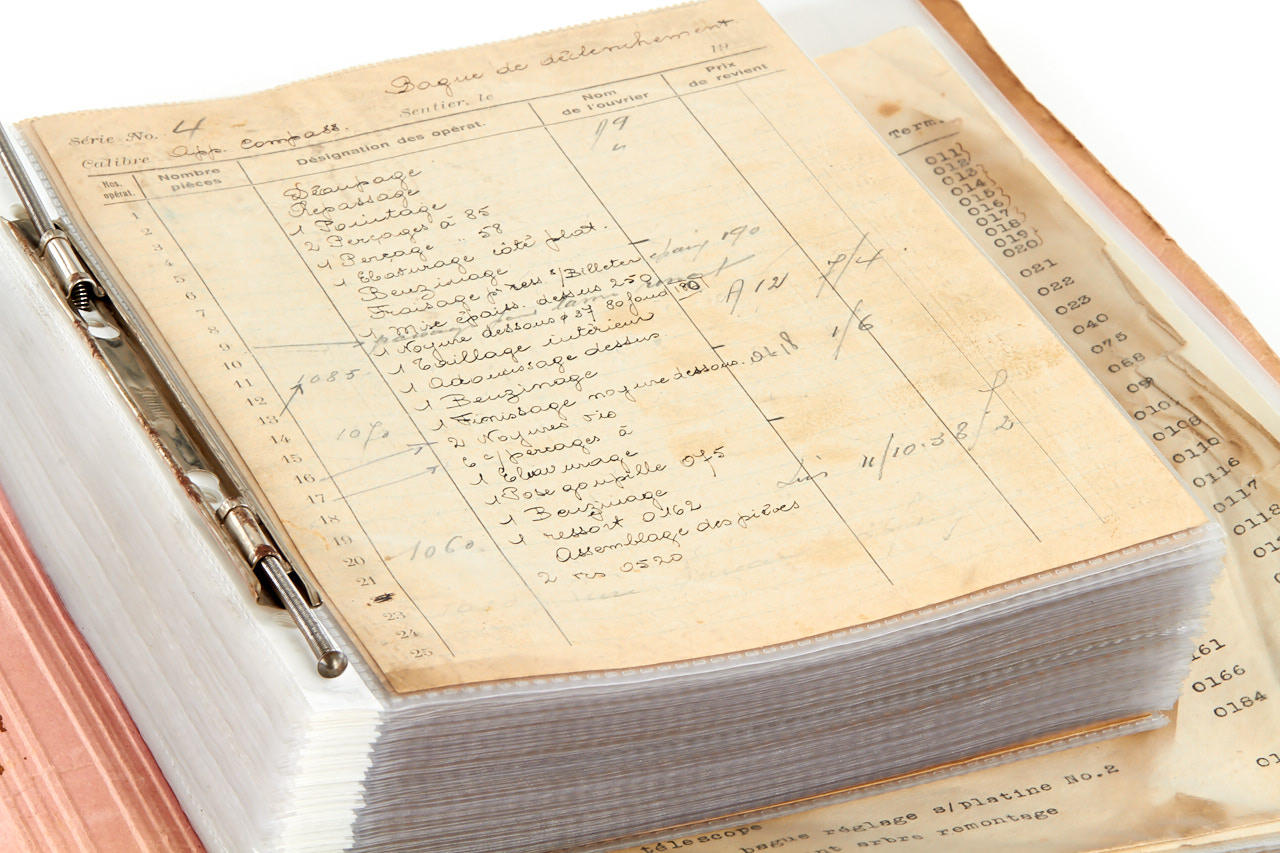 Bague de déclenchement
Série No. 4
Sentier, le 19
Calibre App. Compass.
Nos. opérat.
Nombre pièces
Désignation des opérat.
Nom de l'ouvrier
Prix de revient
1 Découpage
2 Repassage
3 1 Pointage
4 2 Perçages à 85
5 1 Perçage " 58
6 1 Ebavurage côté plat.
7 Benzinage
8 Fraisage
9 1 Mise épais. dessus 250
10 1 Noyure dessous
11 1 Taillage intérieur
12 1 Adoucissage dessus
13 1 Benzinage
14 1 Finissage noyure dessous.
15 2 Noyures vis
16 6 c/perçages à
17 1 Ebavurage
18 1 Pose goupille 075
19 1 Benzinage
20 1 ressort 0162
21 Assemblage des pièces
2 vis 0520
23
24
25
190
A 12 7/4
1/6
1085
1070
1060
11/10.38
Term.
011
012
013
014
015
016
017
018
019
020
021
022
023
040
075
088
0101
0108
0110
0116
0117
0118
0166
0184
télescope
bague réglage s/platine No.2
arbre remontage